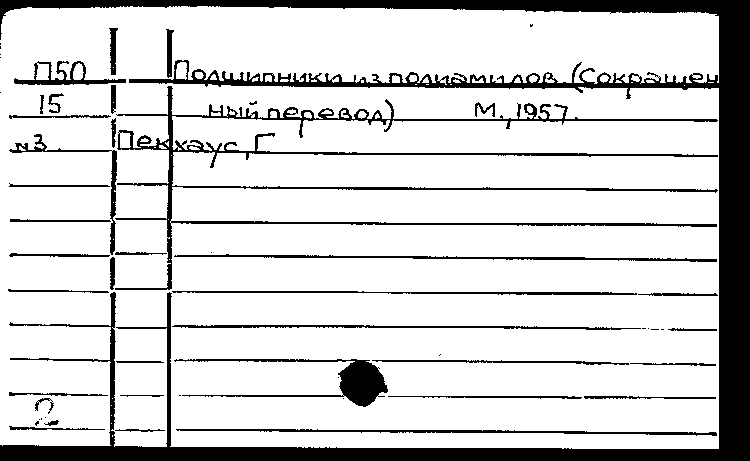 П50 Подшипники из полиамилов. (Сокращен
15 ный перевод) М., 1957.
№3. Пекхаус, Г
2